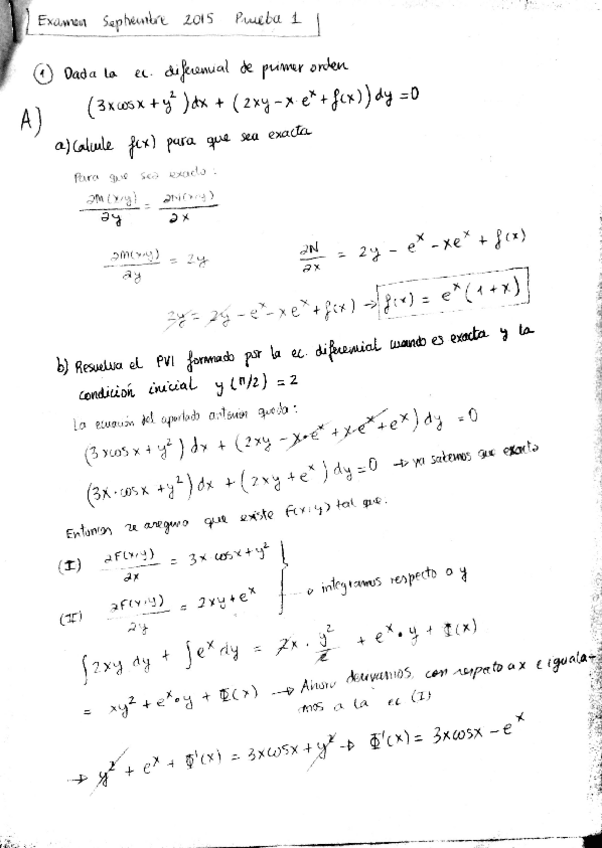 Examen Septiembre 2015 Prueba 1
① Dada la ec. diferencial de primer orden
A) (3xcosx + y²)dx + (2xy - x·eˣ + f(x))dy = 0
a) Calcule f(x) para que sea exacta
Para que sea exacta:
∂M(x,y)/∂y = ∂N(x,y)/∂x
∂M(x,y)/∂y = 2y ∂N/∂x = 2y - eˣ - xeˣ + f(x)
2y = 2y - eˣ - xeˣ + f(x) → f(x) = eˣ(1+x)
b) Resuelva el PVI formado por la ec. diferencial cuando es exacta y la
condición inicial y(π/2) = 2
La ecuación del apartado anterior queda:
(3xcosx + y²)dx + (2xy - x·eˣ + x·eˣ + eˣ)dy = 0
(3x·cosx + y²)dx + (2xy + eˣ)dy = 0 → ya sabemos que exacta
Entonces se asegura que existe F(x,y) tal que:
(I) ∂F(x,y)/∂x = 3x cosx + y²
(II) ∂F(x,y)/∂y = 2xy + eˣ → integramos respecto a y
∫2xy dy + ∫eˣ dy = 2x · y²/2 + eˣ·y + Φ(x)
= xy² + eˣ·y + Φ(x) → Ahora derivamos con respecto a x e iguala-
mos a la ec (I)
→ y² + eˣ + Φ'(x) = 3xcosx + y² → Φ'(x) = 3xcosx - eˣ